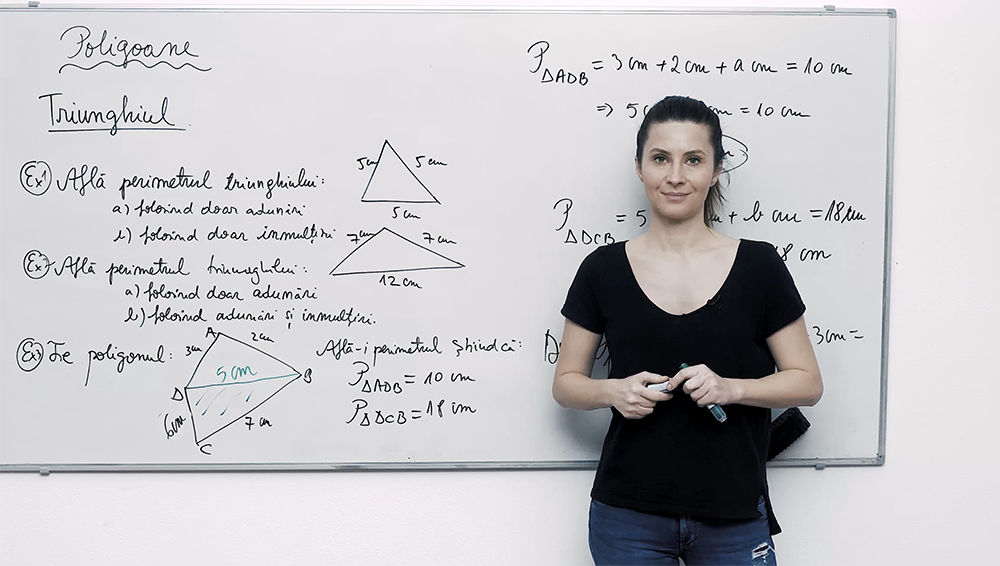 Poligoane
Triunghiul
Ex1 Află perimetrul triunghiului:
a) folosind doar adunări
b) folosind doar înmulțiri
5cm 5cm
5cm
Ex2 Află perimetrul triunghiului:
a) folosind doar adunări
b) folosind adunări și înmulțiri.
7cm 7cm
12 cm
Ex3 Fie poligonul:
A
3cm 2cm
5 cm
D B
6cm 7 cm
C
Află-i perimetrul știind că:
PΔADB = 10 cm
PΔDCB = 18 cm
PΔADB = 3 cm + 2 cm + a cm = 10 cm
⇒ 5 cm = 10 cm
PΔDCB = 5 m + b cm = 18 cm
8 cm
3 cm =